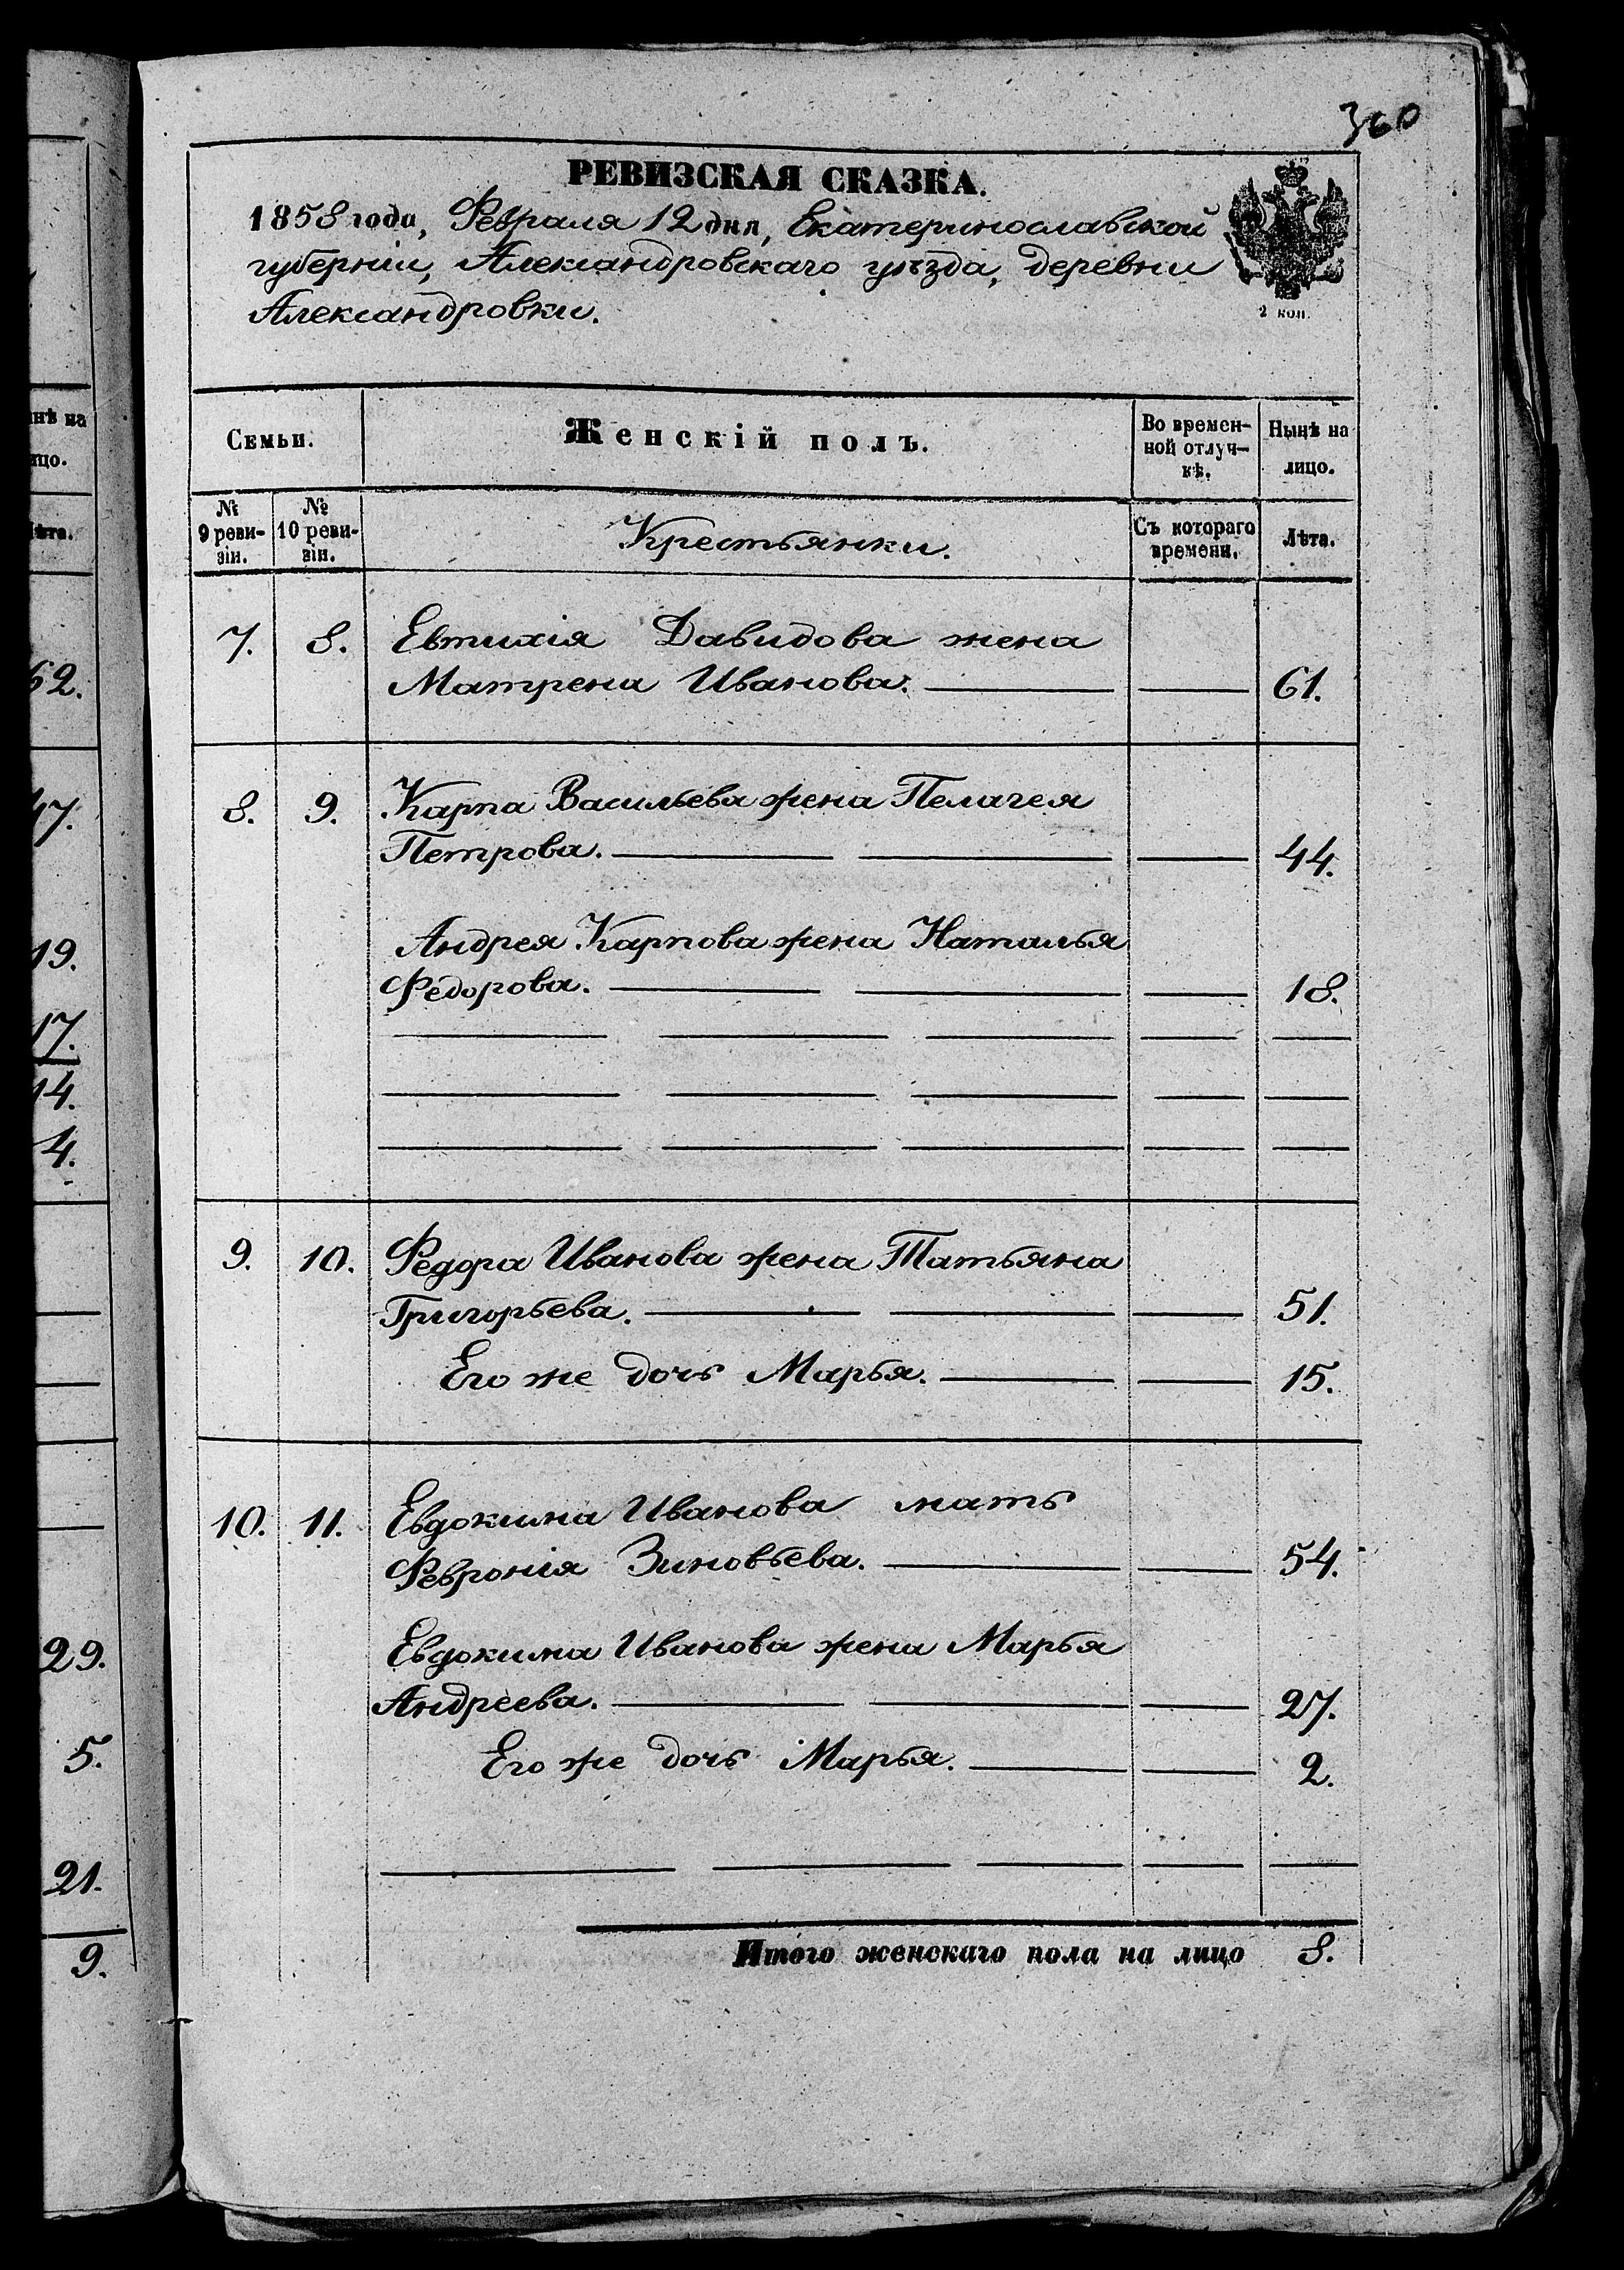 360
РЕВИЗСКАЯ СКАЗКА.
1858 года, Февраля 12 дня, Екатеринославской
губерніи, Александровскаго уѣзда, деревни
Александровки.
2 коп.
Семьи.
Женскій полъ.
Во времен-
ной отлуч-
кѣ.
Нынѣ на
лицо.
№
9 реви-
зіи.
№
10 реви-
зіи.
Крестьянки.
Съ котораго
времени.
Лѣта.
7. 8. Евтихія Давидова жена
Матрена Иванова. 61.
8. 9. Карпа Васильева жена Пелагея
Петрова. 44.
Андрея Карпова жена Наталья
Федорова. 18.
9. 10. Федора Иванова жена Татьяна
Григорьева. 51.
Его же дочь Марья. 15.
10. 11. Евдокима Иванова мать
Февронія Зиновьева. 54.
Евдокима Иванова жена Марья
Андреева. 27.
Его же дочь Марья. 2.
Итого женскаго пола на лицо 8.
62.
47.
19.
17.
14.
4.
29.
5.
21.
9.